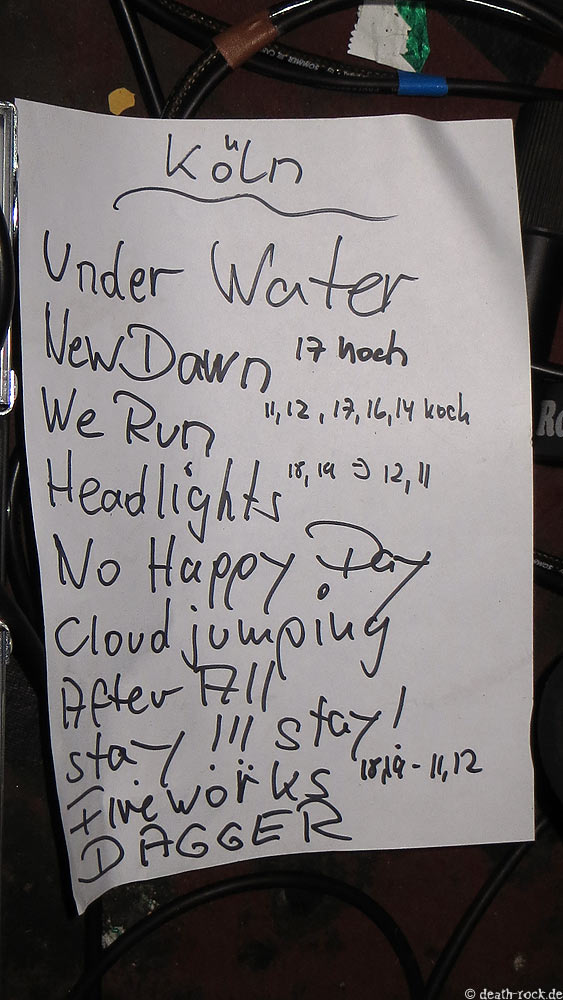 Köln
Under Water
New Dawn 17 hoch
We Run 11, 12, 17, 16, 14 hoch
Headlights 18, 19 → 12, 11
No Happy Day
Cloud jumping
After All
stay !!! stay!
Fireworks 18, 19 - 11, 12
DAGGER
SOMMER CA
Ro
© death-rock.de